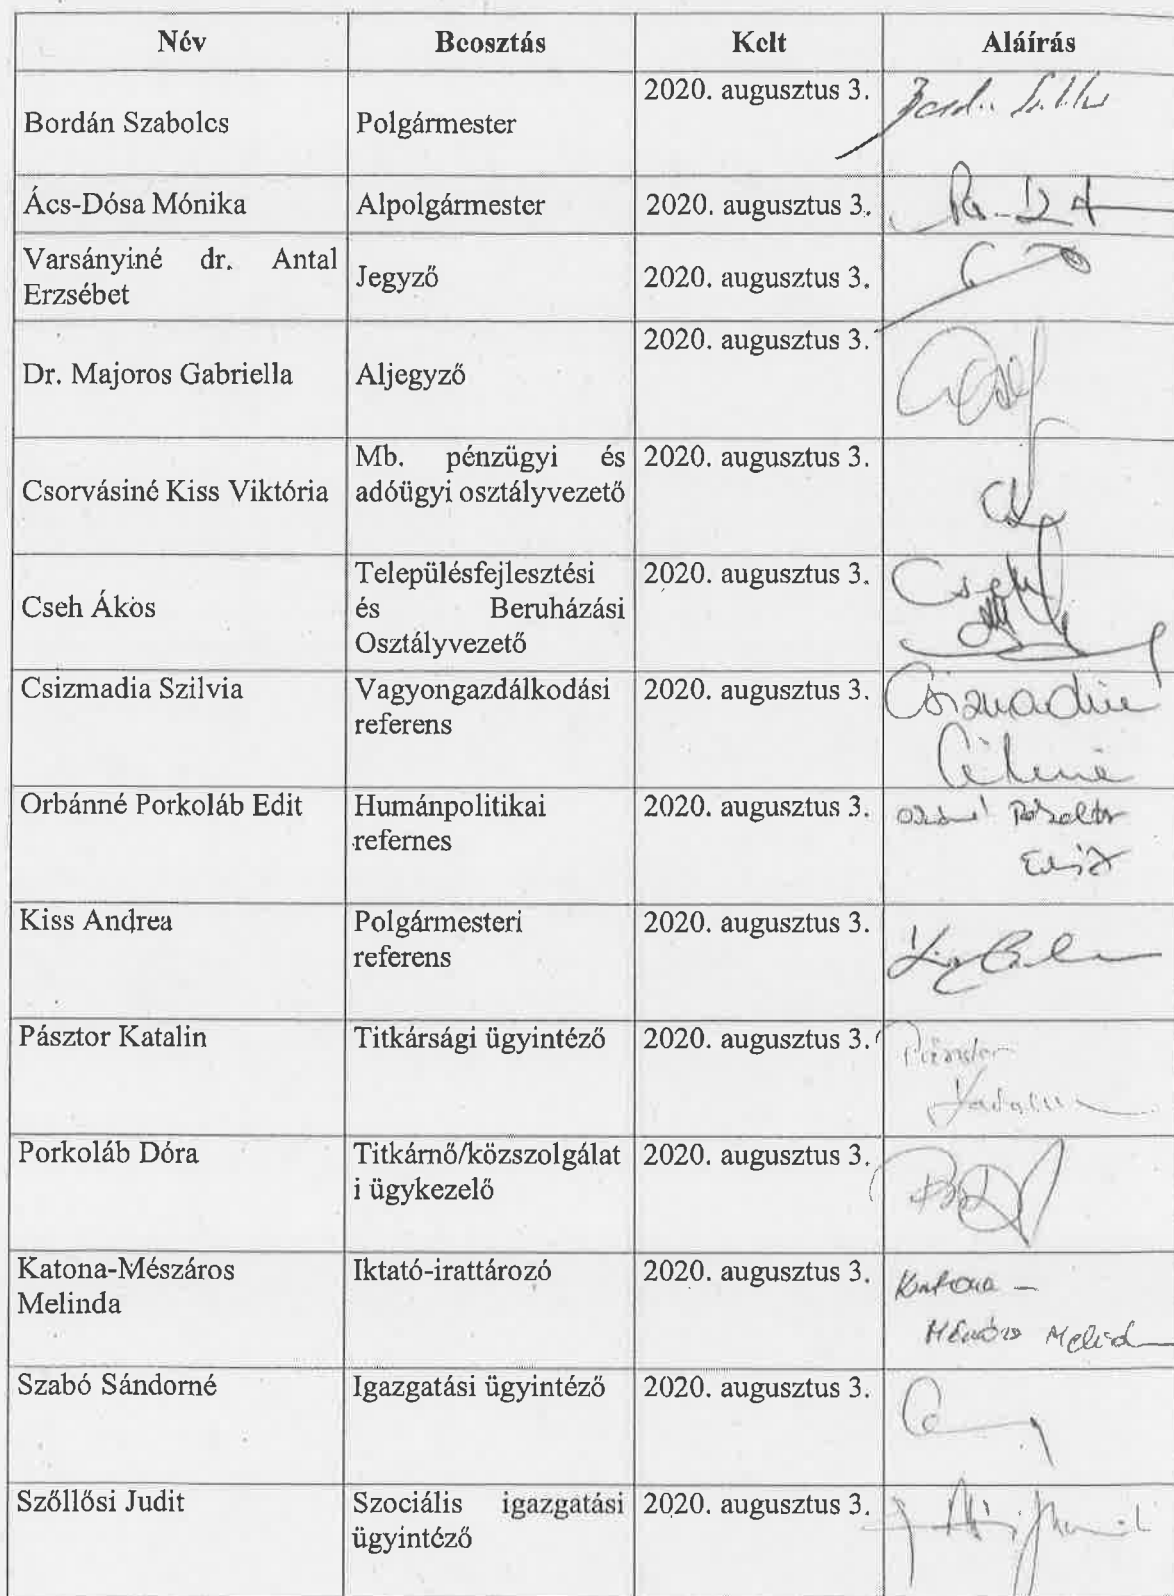 Név Beosztás Kelt Aláírás
Bordán Szabolcs Polgármester 2020. augusztus 3.
Ács-Dósa Mónika Alpolgármester 2020. augusztus 3.
Varsányiné dr. Antal
Erzsébet
Jegyző 2020. augusztus 3.
Dr. Majoros Gabriella Aljegyző 2020. augusztus 3.
Csorvásiné Kiss Viktória
Mb. pénzügyi és
adóügyi osztályvezető
2020. augusztus 3.
Cseh Ákos
Településfejlesztési
és Beruházási
Osztályvezető
2020. augusztus 3.
Cseh
Csizmadia Szilvia
Vagyongazdálkodási
referens
2020. augusztus 3.
Orbánné Porkoláb Edit
Humánpolitikai
refernes
2020. augusztus 3.
Edit
Kiss Andrea
Polgármesteri
referens
2020. augusztus 3.
Pásztor Katalin Titkársági ügyintéző 2020. augusztus 3.
Pásztor
Katalin
Porkoláb Dóra
Titkárnő/közszolgálat
i ügykezelő
2020. augusztus 3.
Katona-Mészáros
Melinda
Iktató-irattározó 2020. augusztus 3.
Katona –
Szabó Sándorné Igazgatási ügyintéző 2020. augusztus 3.
Szőllősi Judit
Szociális igazgatási
ügyintéző
2020. augusztus 3.